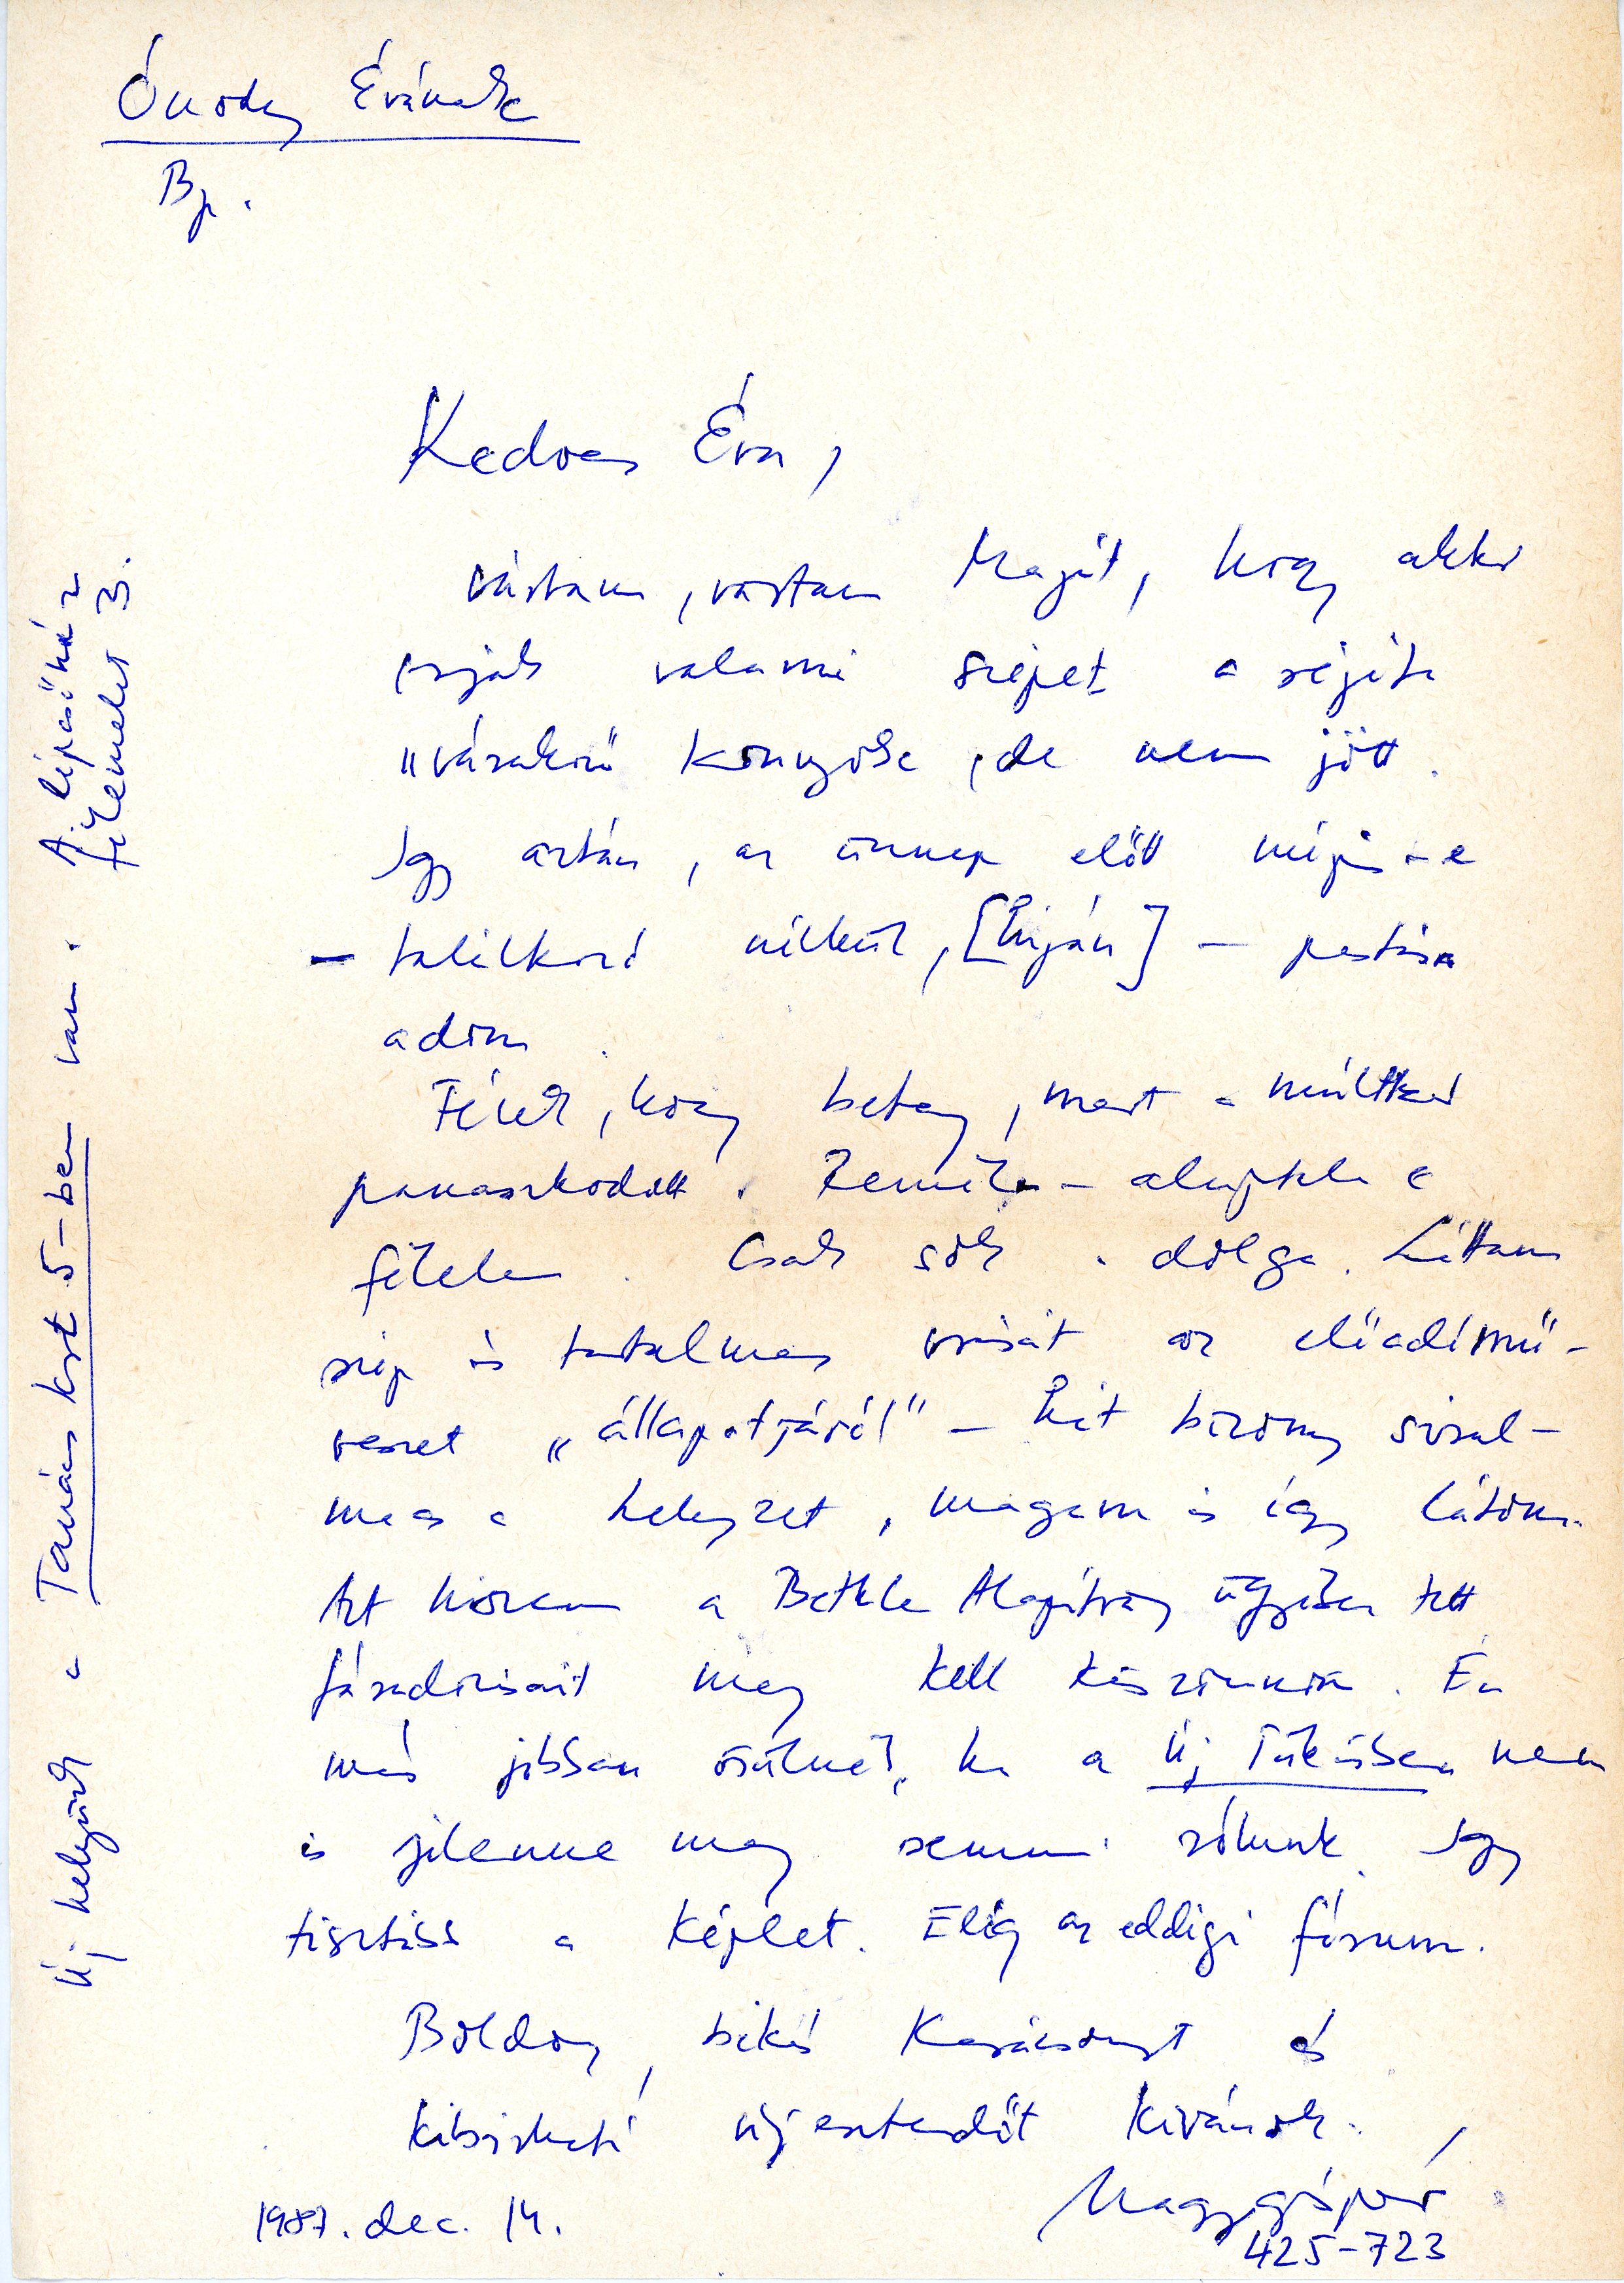 Ónody Évának
Bp.
Kedves Éva,
vártam, vártam Magát, hogy akkor
írjak valami szépet a régebbi
"vásárolt" könyvbe, de nem jött.
Így aztán, az ünnep előtt mégis
– találkozó nélkül, [híján] – postára
adom.
Félek, hogy beteg, mert a múltkor
panaszkodott. Remélem – alaptalan a
félelem. Csak sok a dolga. Láttam
szép és tartalmas írását az előadómű-
vészet „állapotjáról" – hát bizony siral-
mas a helyzet, magam is így látom.
Azt hiszem a Bethlen Alapítvány ügyében tett
fáradozásait meg kell köszönnöm. Én
már jobban örülnék, ha a Új Tükörben nem
is jelenne meg semmi rólunk. Így
tisztább a képlet. Elég az eddigi fórum.
Boldog, békés Karácsonyt és
kibírható új esztendőt kívánok:
Nagy Gáspár
425-723
1987. dec. 14.
Új helyünk a Tanács krt. 5-ben van: A. lépcsőház
félemelet 3.